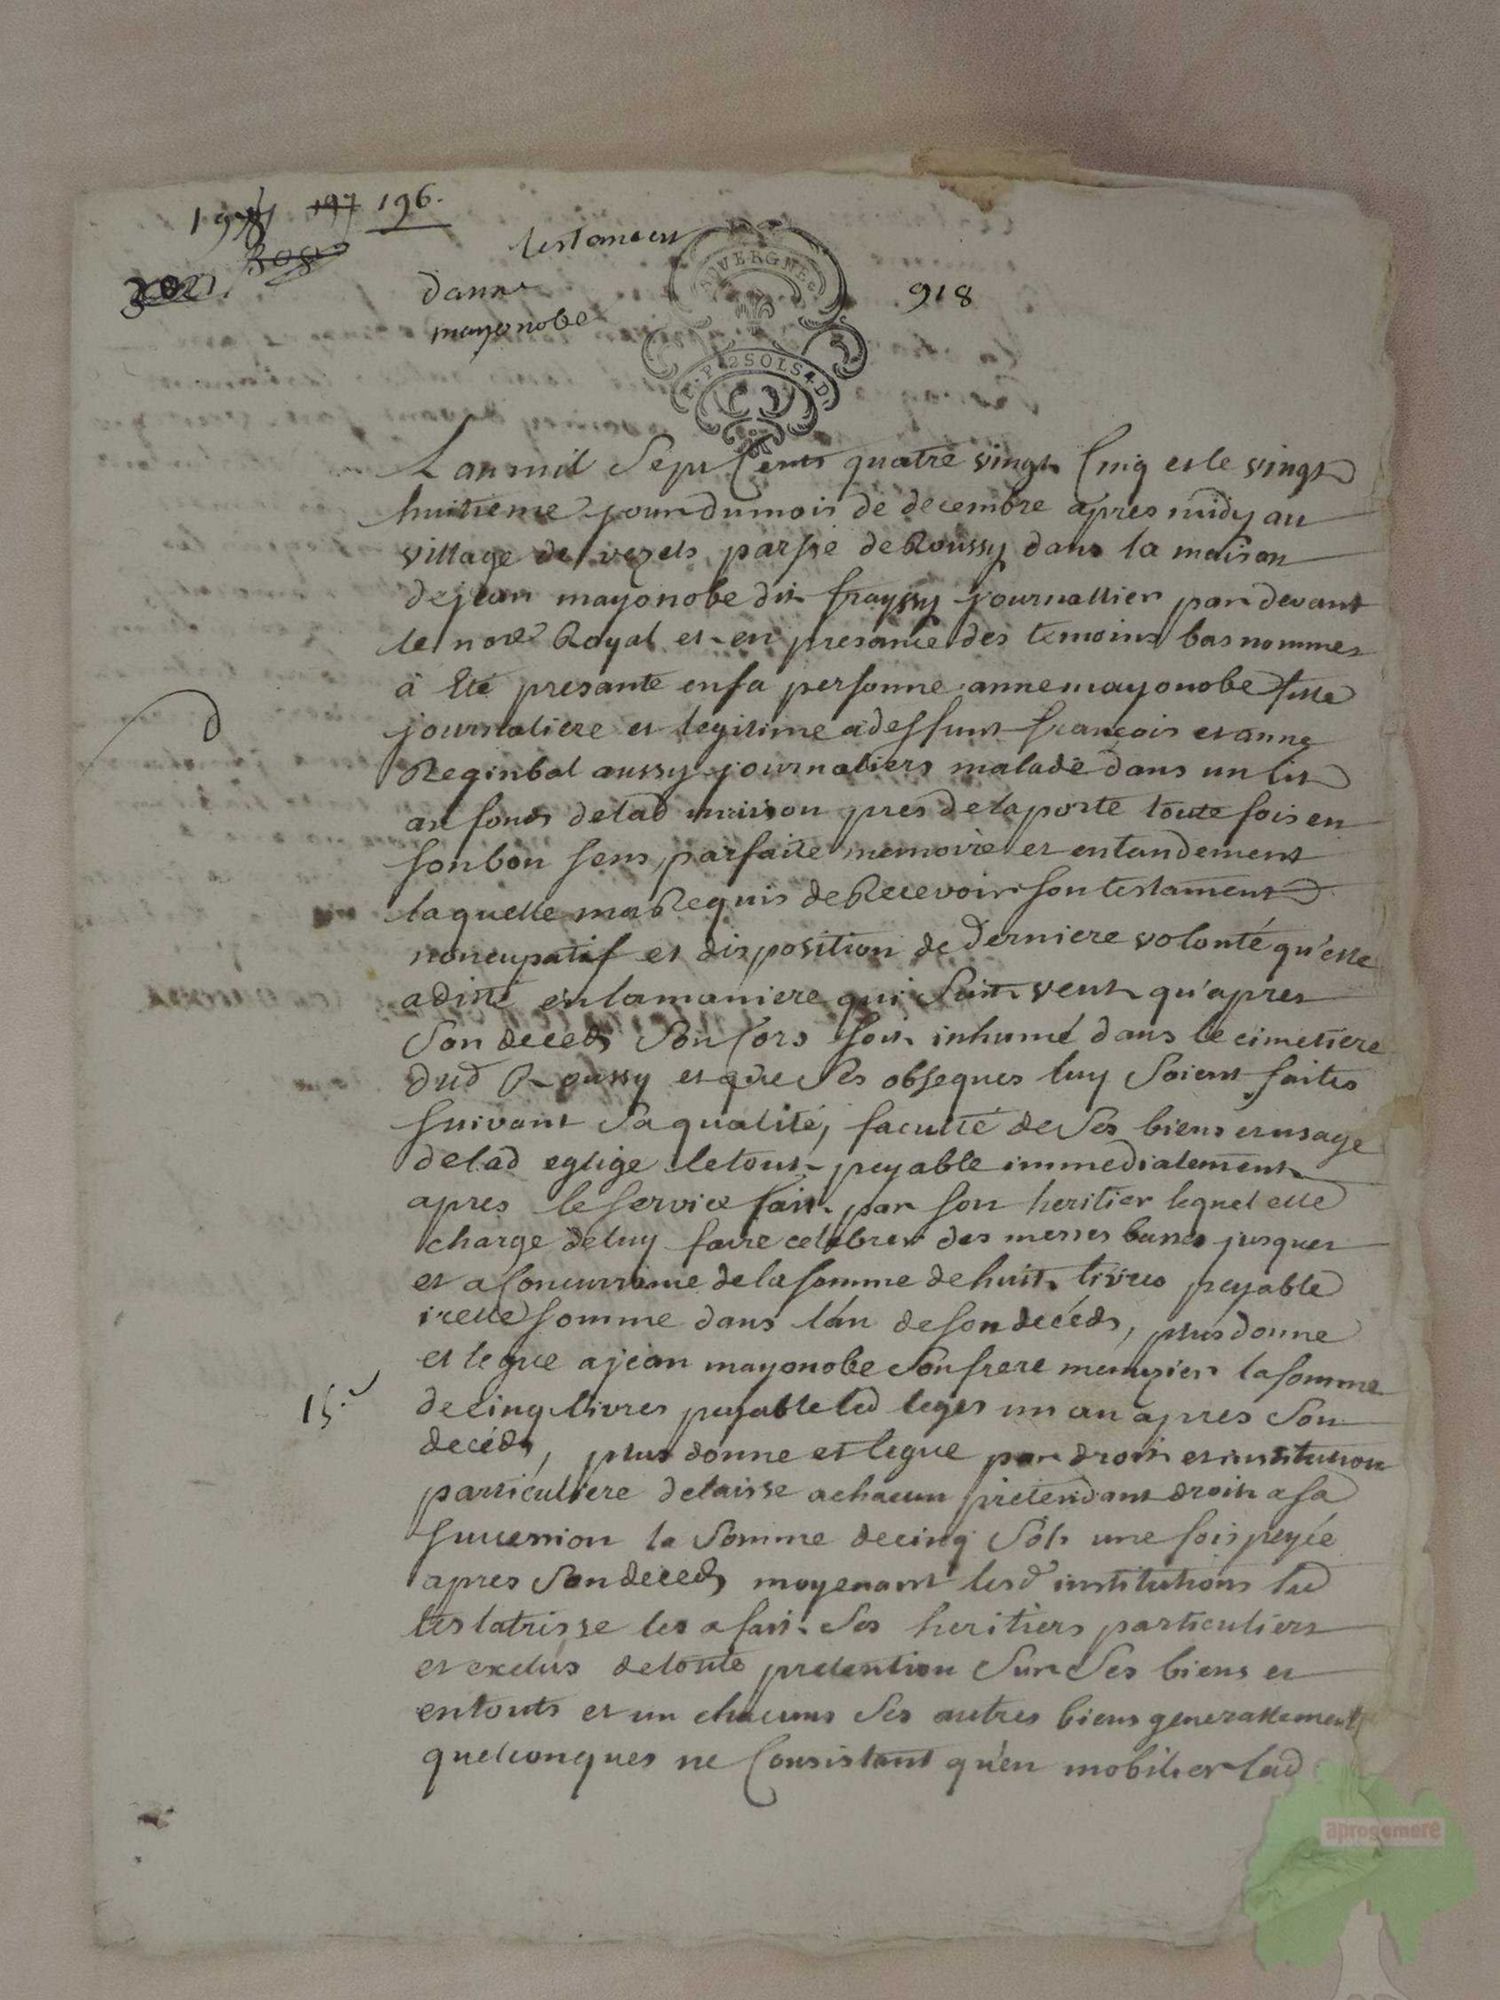 197 196.
testament
danne
mayonobe
AUVERGNE
918
2 SOLS 4 D.
L'an mil Sept Cents quatre vingt Cinq et le vingt
huitieme jour du mois de decembre apres midy au
village de vezels parsse de Roussy dans la maison
de jean mayonobe dit frayssy journallier par devant
le nore Royal et en presance des temoins bas nommes
à Eté presante en sa personne anne mayonobe fille
journaliere et legitime a deffunt françois et anne
Reginbal aussy journaliers malade dans un lit
au fonds de lad maison pres de la porte toute fois en
son bon sens, parfaite memoire et entandement
laquelle ma Requis de Recevoir son testament
noncupatif et disposition de derniere volonté qu'elle
a dité en la maniere qui Suit veut qu'apres
Son deceds Son Cors soit inhumé dans le cimetiere
dud Roussy et que Ses obseques luy Soient faites
suivant Sa qualité, faculté de Ses biens et usage
de lad eglise le tout payable immediatement
apres le service fait par son heritier lequel elle
charge de luy faire celebrer des messes basses jusques
et a Concurrance de la somme de huit livres payable
icelle somme dans l'an de son decéds, plus donne
et legue a jean mayonobe Son frere menuzier la somme
15.
de cinq livres payable led leges un an apres Son
decéds, plus donne et legue par droit et institution
particuliere delaisse a chacun pretendant droit a sa
succession la Somme de cinq Sols une fois peyée
apres Son deceds moyenant lesd institutions lad
testatrisse les a fait Ses heritiers particuliers
et exclus de toute pretention Sur Ses biens et
en touts et un chacuns Ses autres biens generallement
quelconques ne Consistant qu'en mobilier lad
aprogemere